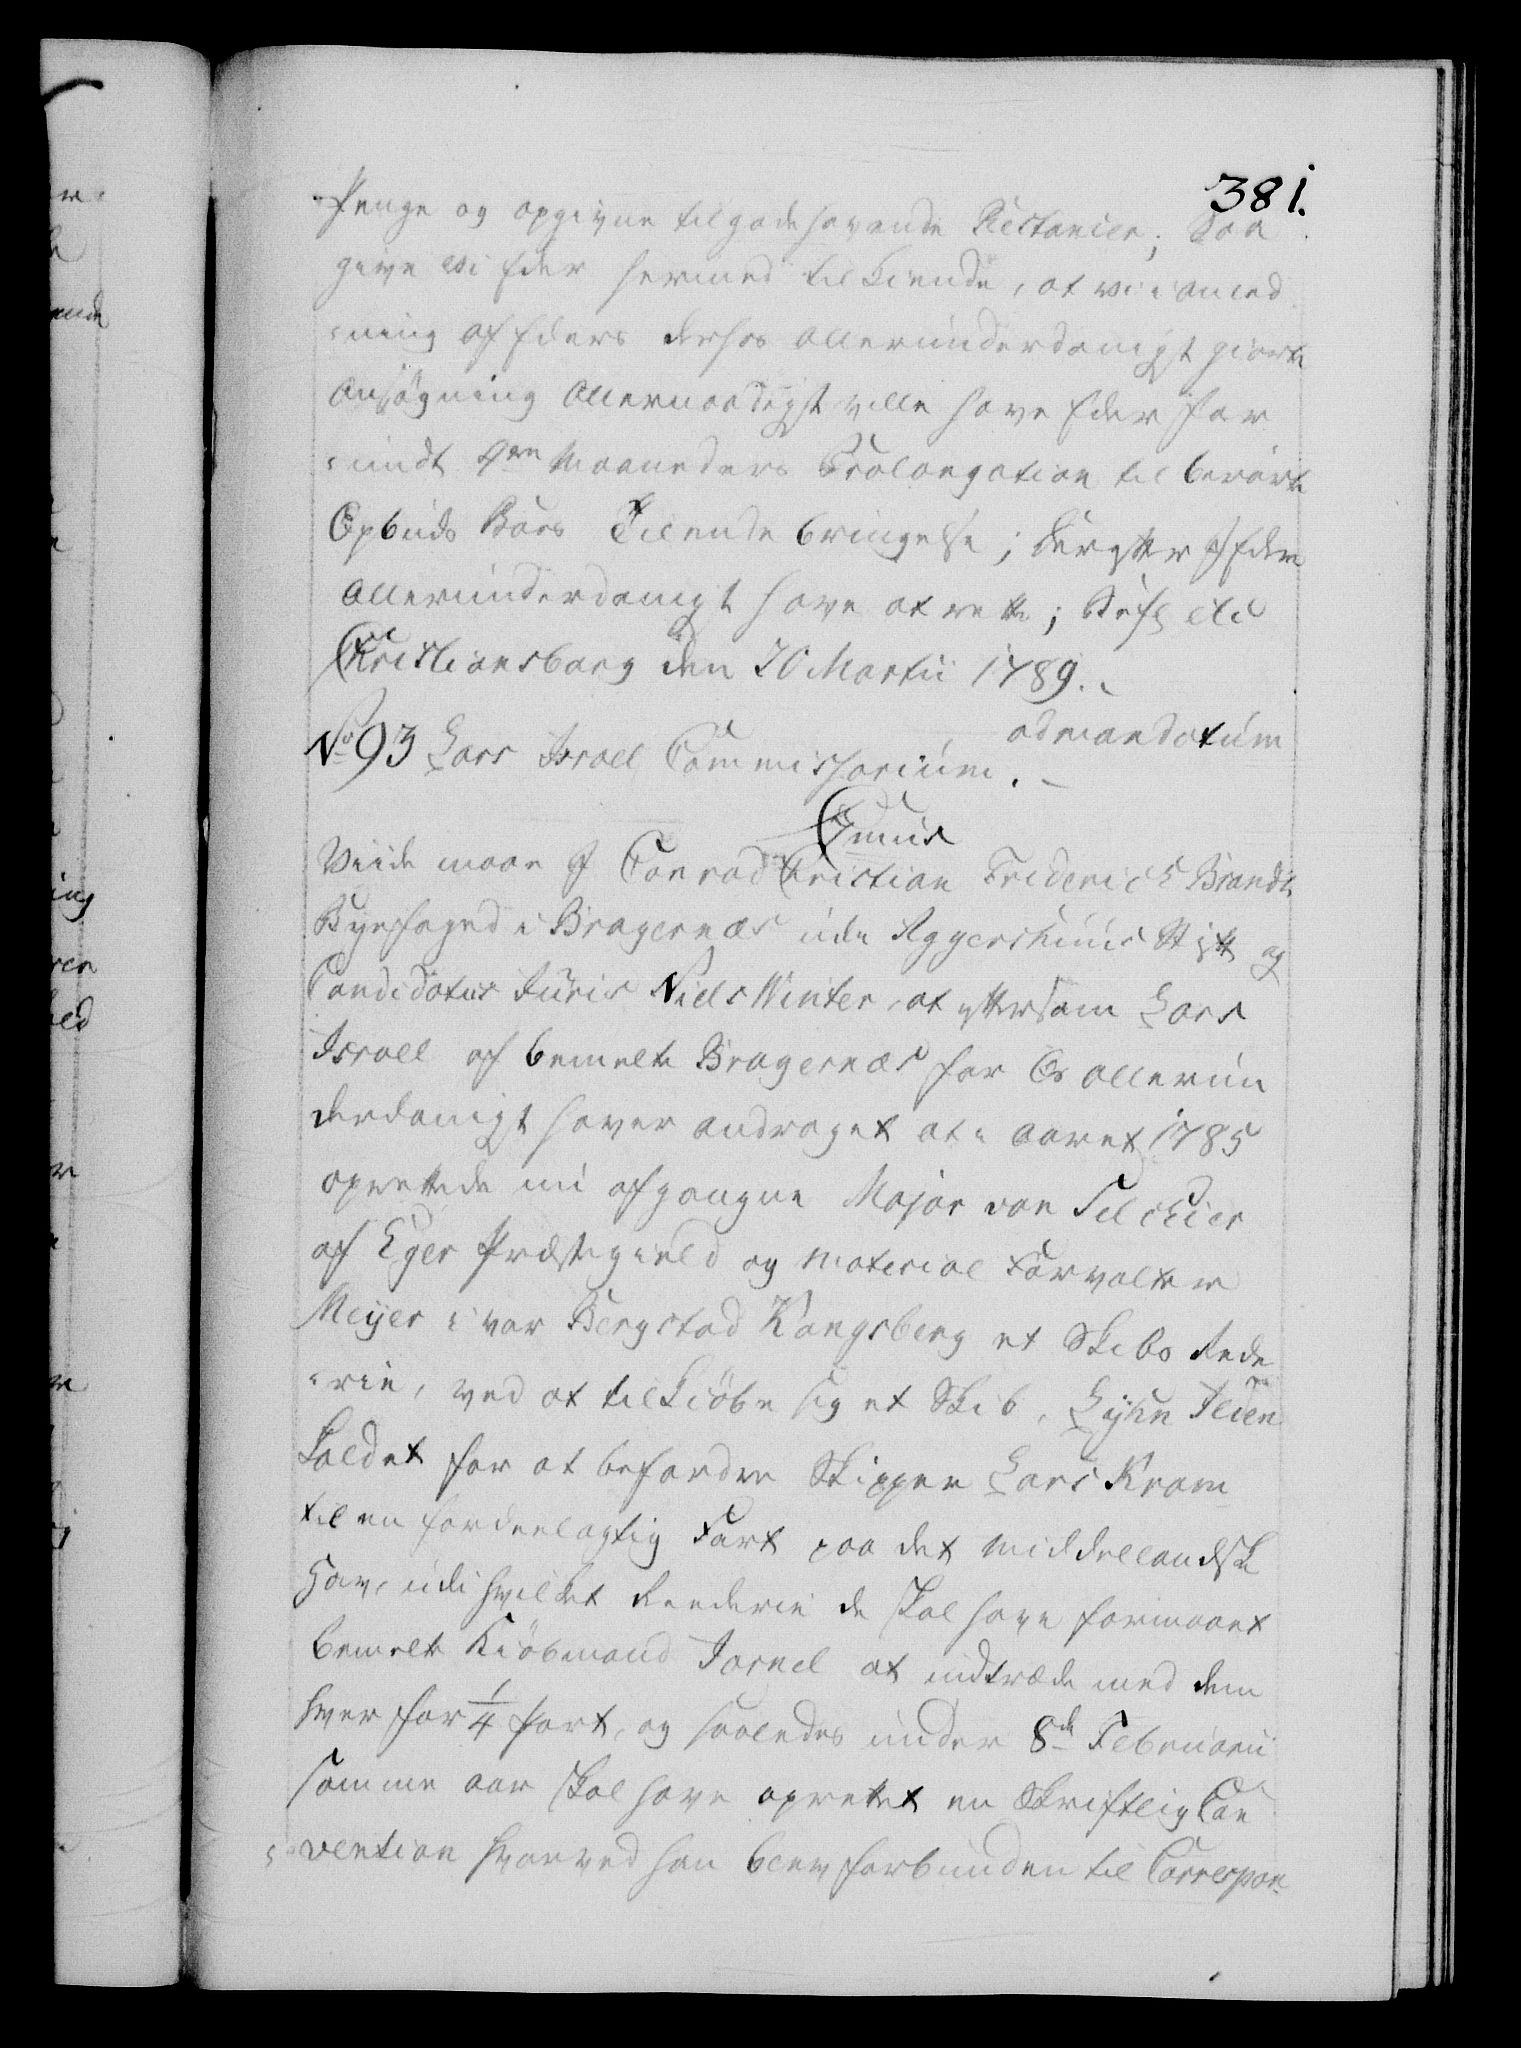 381.
Penge og opgivne tilgodehavende Restancer; Saa
give Vi Eder hermed tilkiende, at vi i anled
-ning af Eders derhos allerunderdanigst giorte
Ansøgning Allernaadigst ville have Eder for
-undt Maaneders Prolongation til berørte
Opbuds Boes Tilendebringelse; Derefter I Eder
allerunderdanigst have at rette; Befl etc
Christiansborg den 20 Martii 1789.
ad mandatum
No 93 Lars Israel Commissorium.
Gnuus
Viide maae I Conrad Christian Friderich Brandt
Byefoged i Bragernæs udi Aggershuus Stift og
Candidatus Juris Niels Winter, at eftersom Lars
Israel af bemelte Bragernæs for Os allerun
derdanigst haver andraget at i Aaret 1785
oprettede nu afgangne Major von Telchier
af Eger Præstegield og Material Forvalter
Meyer i vor Bergstad Kongsberg et Skibs Rede
-rie, ved at tilkiøbe sig et Skib, Lykn Jeden
kaldet for at befordre Skipper Lars Kram
til en fordeelagtig Fart paa det middellandske
Hav, udi hvilket Reederie de skal have formaaet
bemelte Kiøbmand Israel at indtræde med dem
hver for 1/4 Part, og saaledes under 8de Februarii
samme aar skal have oprettet en Skriftlig Con
-vention hvorved han blev forbunden til Correspon-